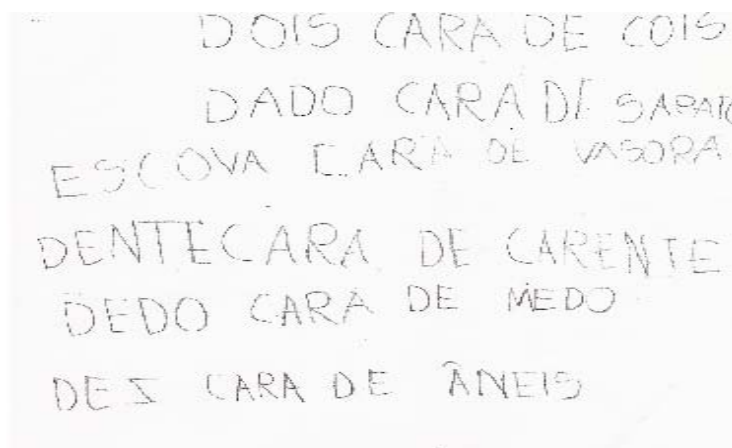 DOIS CARA DE COIS
DADO CARA DE SAPATO
ESCOVA CARA DE VASORA
DENTECARA DE CARENTE
DEDO CARA DE MEDO
DEZ CARA DE ÂNEIS